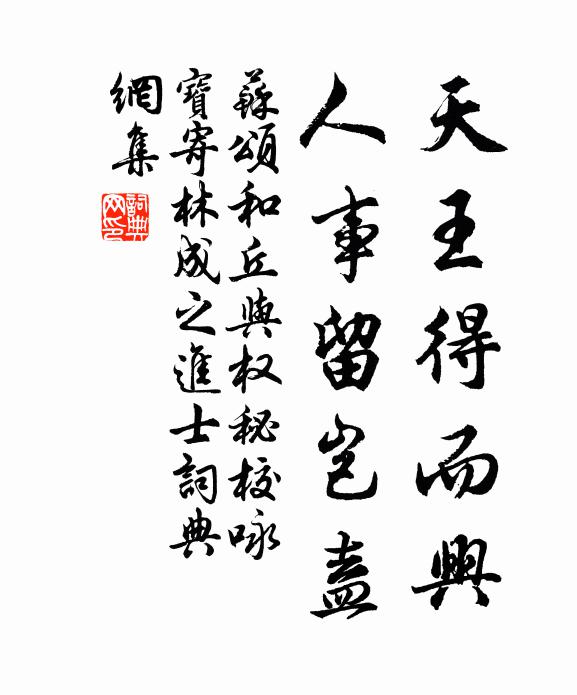 天王得而興
人事留岂盍
蘇頌和丘與权秘校咏
寶寄林成之進士詞典
網集
詞典
网印